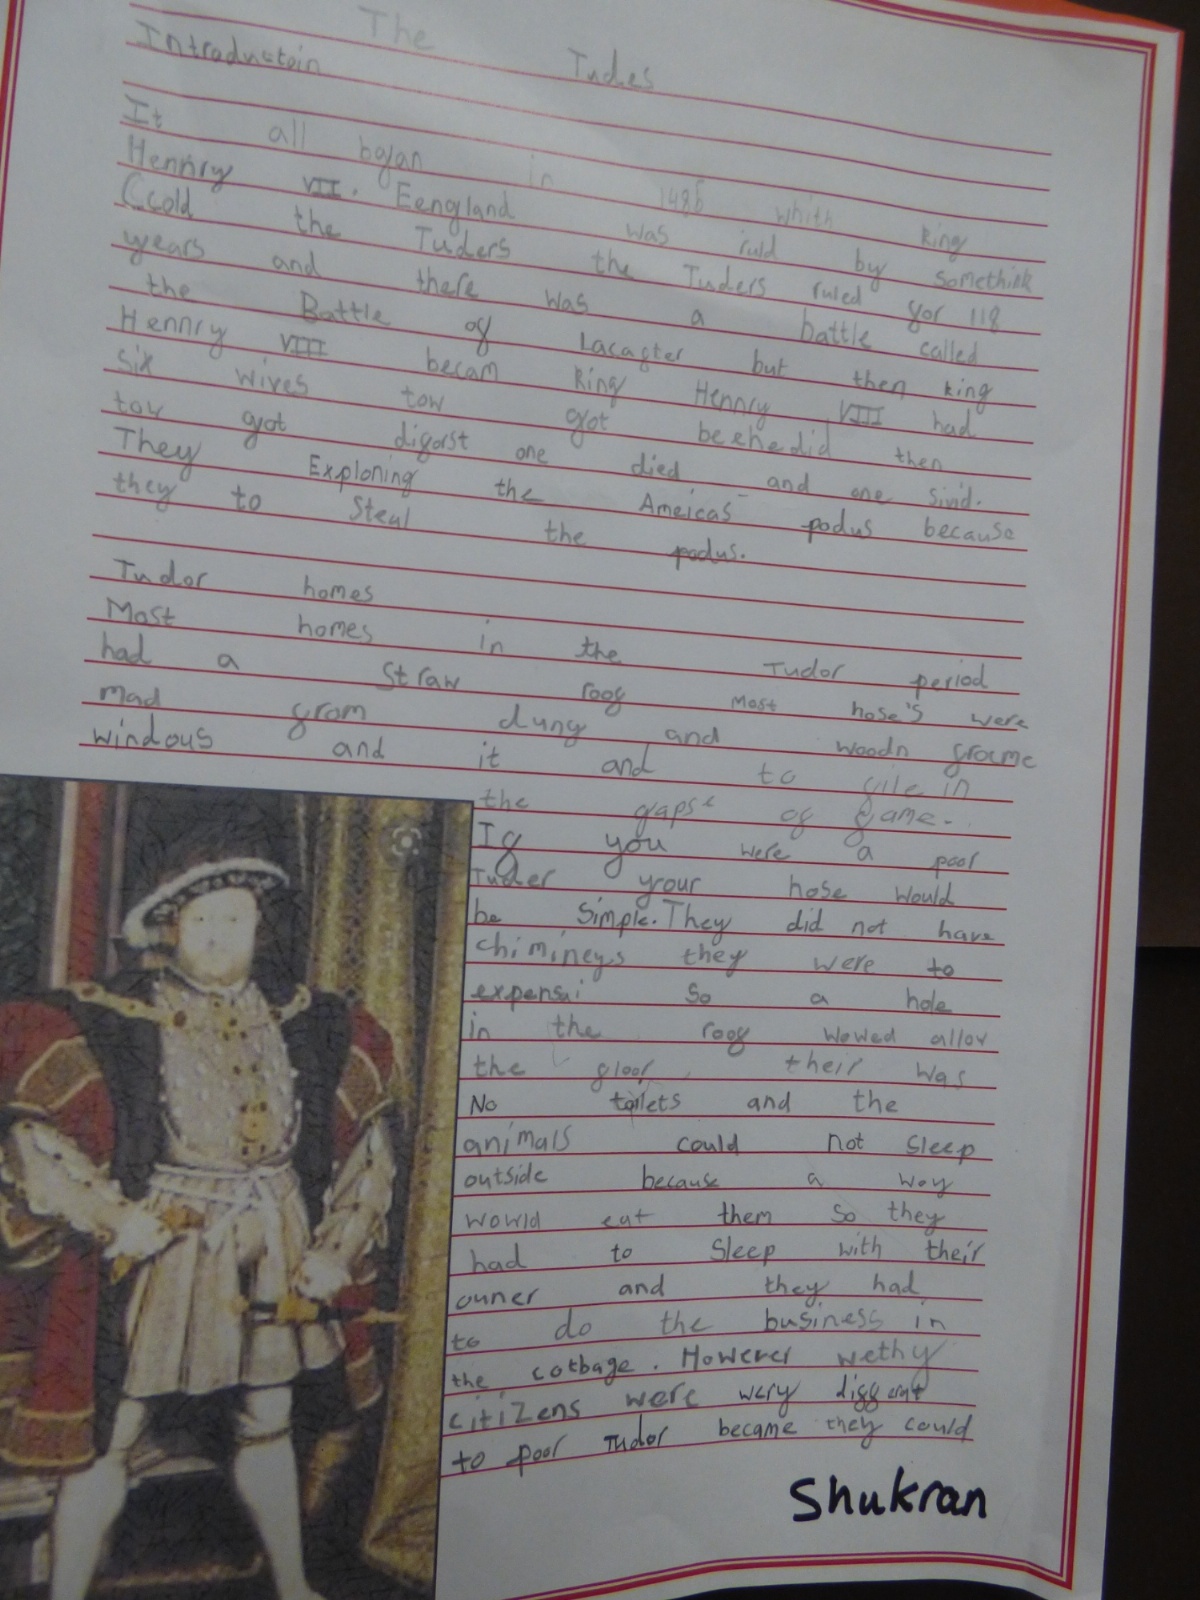 The Tudes
Introductoin
It all bgan in 1485 whith king
Hennry VII. Eengland was ruld by somethink
Ccold the Tuders the Tuders ruled for 118
years and there was a battle called
the Battle of Lacaster but then king
Hennry VIII becam King Hennry VIII had
six wives tow got behedid then
tow got digorst one died and one sivid.
They Exploning the Ameicas podus because
they to Steal the podus.
Tudor homes
Most homes in the Tudor period
had a straw roof Most hose's were
mad from dung and woodn frame
windous and it and to file in
the gapse of fame.
If you were a poor
Tuder your hose would
be simple. They did not have
chimineys they were to
expensi so a hole
in the roof wowed allow
the floor their was
No toilets and the
animals could not sleep
outside because a woy
wowld eat them so they
had to sleep with their
owner and they had
to do the business in
the cotbage. However wethy
citizens were wery diffeent
to poor Tudor became they could
Shukran